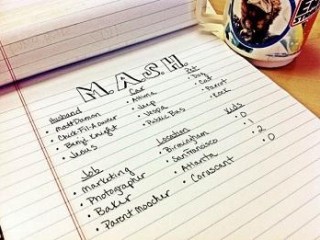 M.A.S.H.
Husband
• Matt Damon
• Chick-Fil-A owner
• Beryl Knight
• Jesus
Car
• Acura
• Jeep
• Vespa
• Public Bus
Pet
• Dog
• Cat
• Parrot
Job
• Marketing
• Photographer
• Baker
• Parent moocher
Location
• Birmingham
• San Francisco
• Atlanta
• Corascant
Kids
• 0
• 2
• 0